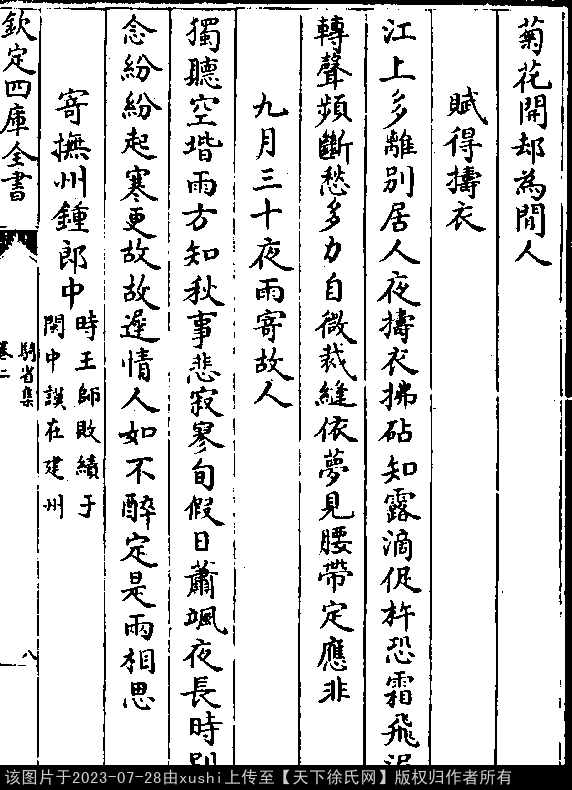 菊花開却為閒人
賦得擣衣
江上多離別居人夜擣衣拂砧知露滴促杵恐霜飛
轉聲頻斷愁多力自微裁縫依夢見腰帶定應非
九月三十夜雨寄故人
獨聽空堦雨方知秋事悲寂寥旬假日蕭颯夜長時
念紛紛起寒更故故遲情人如不醉定是兩相思
寄撫州鍾郎中
時王師敗績于
閩中議在建州
欽定四庫全書
騎省集
卷二
八
该图片于2023-07-28由xushi上传至【天下徐氏网】版权归作者所有